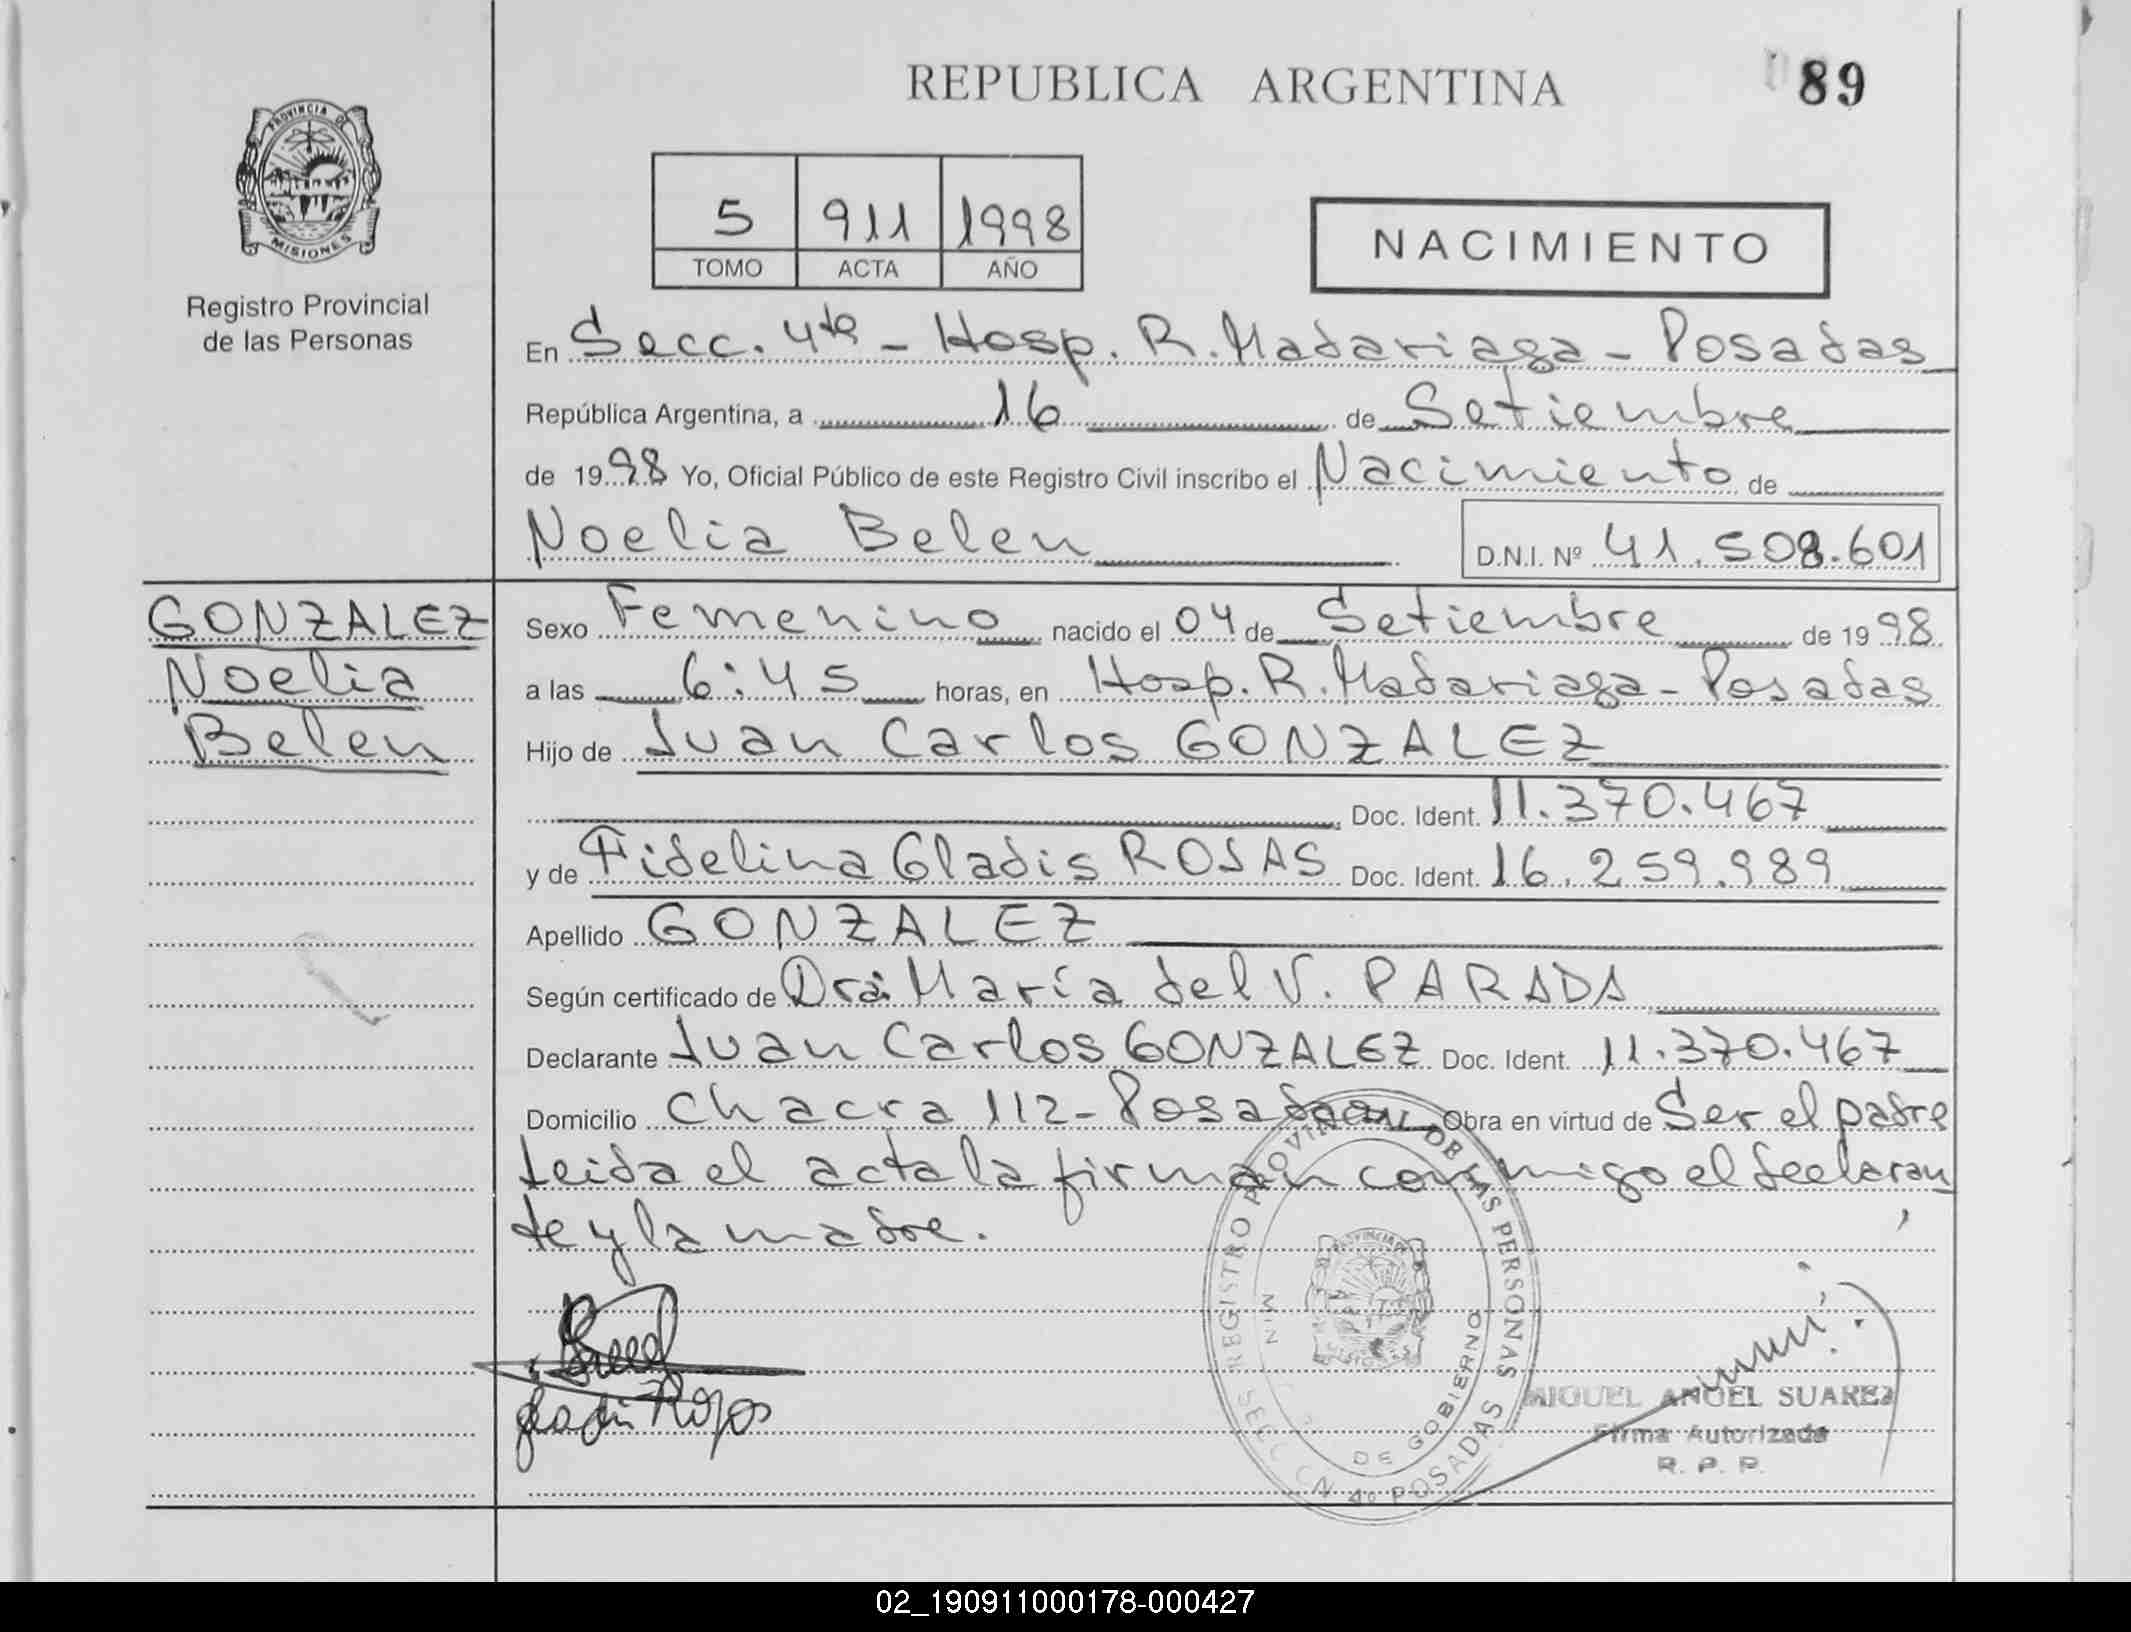 REPUBLICA ARGENTINA
89
PROVINCIA DE
MISIONES
Registro Provincial
de las Personas
5 911 1998
TOMO ACTA AÑO
NACIMIENTO
En Secc. 4ta - Hosp. R. Madariaga - Posadas
República Argentina, a 16 de Setiembre
de 1998 Yo, Oficial Público de este Registro Civil inscribo el Nacimiento de
Noelia Belen D.N.I. Nº 41.508.601
GONZALEZ
Noelia
Belen
Sexo Femenino nacido el 04 de Setiembre de 1998
a las 6:45 horas, en Hosp. R. Madariaga - Posadas
Hijo de Juan Carlos GONZALEZ
Doc. Ident. 11.370.467
y de Fidelina Gladis ROJAS Doc. Ident. 16.259.989
Apellido GONZALEZ
Según certificado de Dra. María del V. PARADA
Declarante Juan Carlos GONZALEZ Doc. Ident. 11.370.467
Domicilio Chacra 112 - Posadas Obra en virtud de Ser el padre
Leida el acta la firman conmigo el declaran
te y la madre.
REGISTRO PROVINCIAL DE LAS PERSONAS
DE GOBIERNO
SECCION 4º POSADAS
Rojas
MIGUEL ANGEL SUAREZ
Firma Autorizada
R. P. P.
02_190911000178-000427